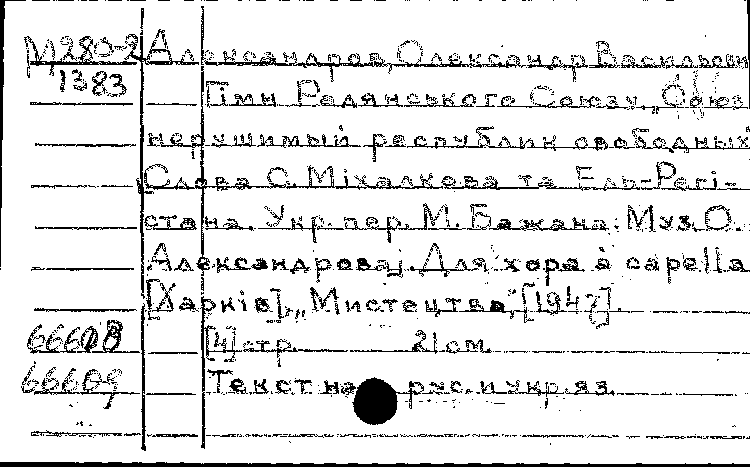 М280-2 Александров, Олександр Васильови
1383 Гімн Радянського Союзу „Союз
нерушимый республик свободных
[Слова С. Міхалкова та Ель-Регі-
стана. Укр. пер. М. Бажана. Муз. О.
Александрова]. Для хора à capella
[Харків], „Мистецтво", [1947].
66608 [4] стр. 21 см.
66609 Текст на рус. и укр. яз.